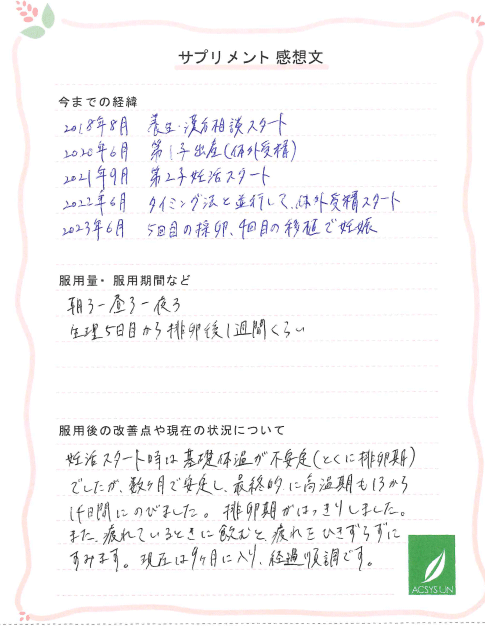 サプリメント 感想文
今までの経緯
2018年8月 養生・漢方相談スタート
2020年6月 第1子出産(体外受精)
2021年9月 第2子妊活スタート
2022年6月 タイミング法と並行して、体外受精スタート
2023年6月 5回目の採卵、4回目の移植で妊娠
服用量・服用期間など
朝3ー昼3ー夜3
生理5日目から排卵後1週間くらい
服用後の改善点や現在の状況について
妊活スタート時は基礎体温が不安定(とくに排卵期)
でしたが、数ヶ月で安定し、最終的に高温期も13から
14日間にのびました。排卵期がはっきりしました。
また、疲れているときに飲むと疲れをひきずらずに
すみます。現在は9ヶ月に入り、経過順調です。
ACSYSUN